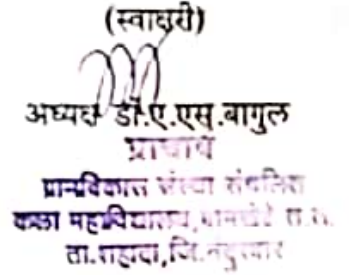 (स्वाक्षरी)
अध्यक्ष डॉ.ए.एस.बागुल
प्राचार्य
ग्रामविकास संस्था संचलित
कला महाविद्यालय,बामखेडे त.त.
ता.शहादा,जि.नंदुरबार